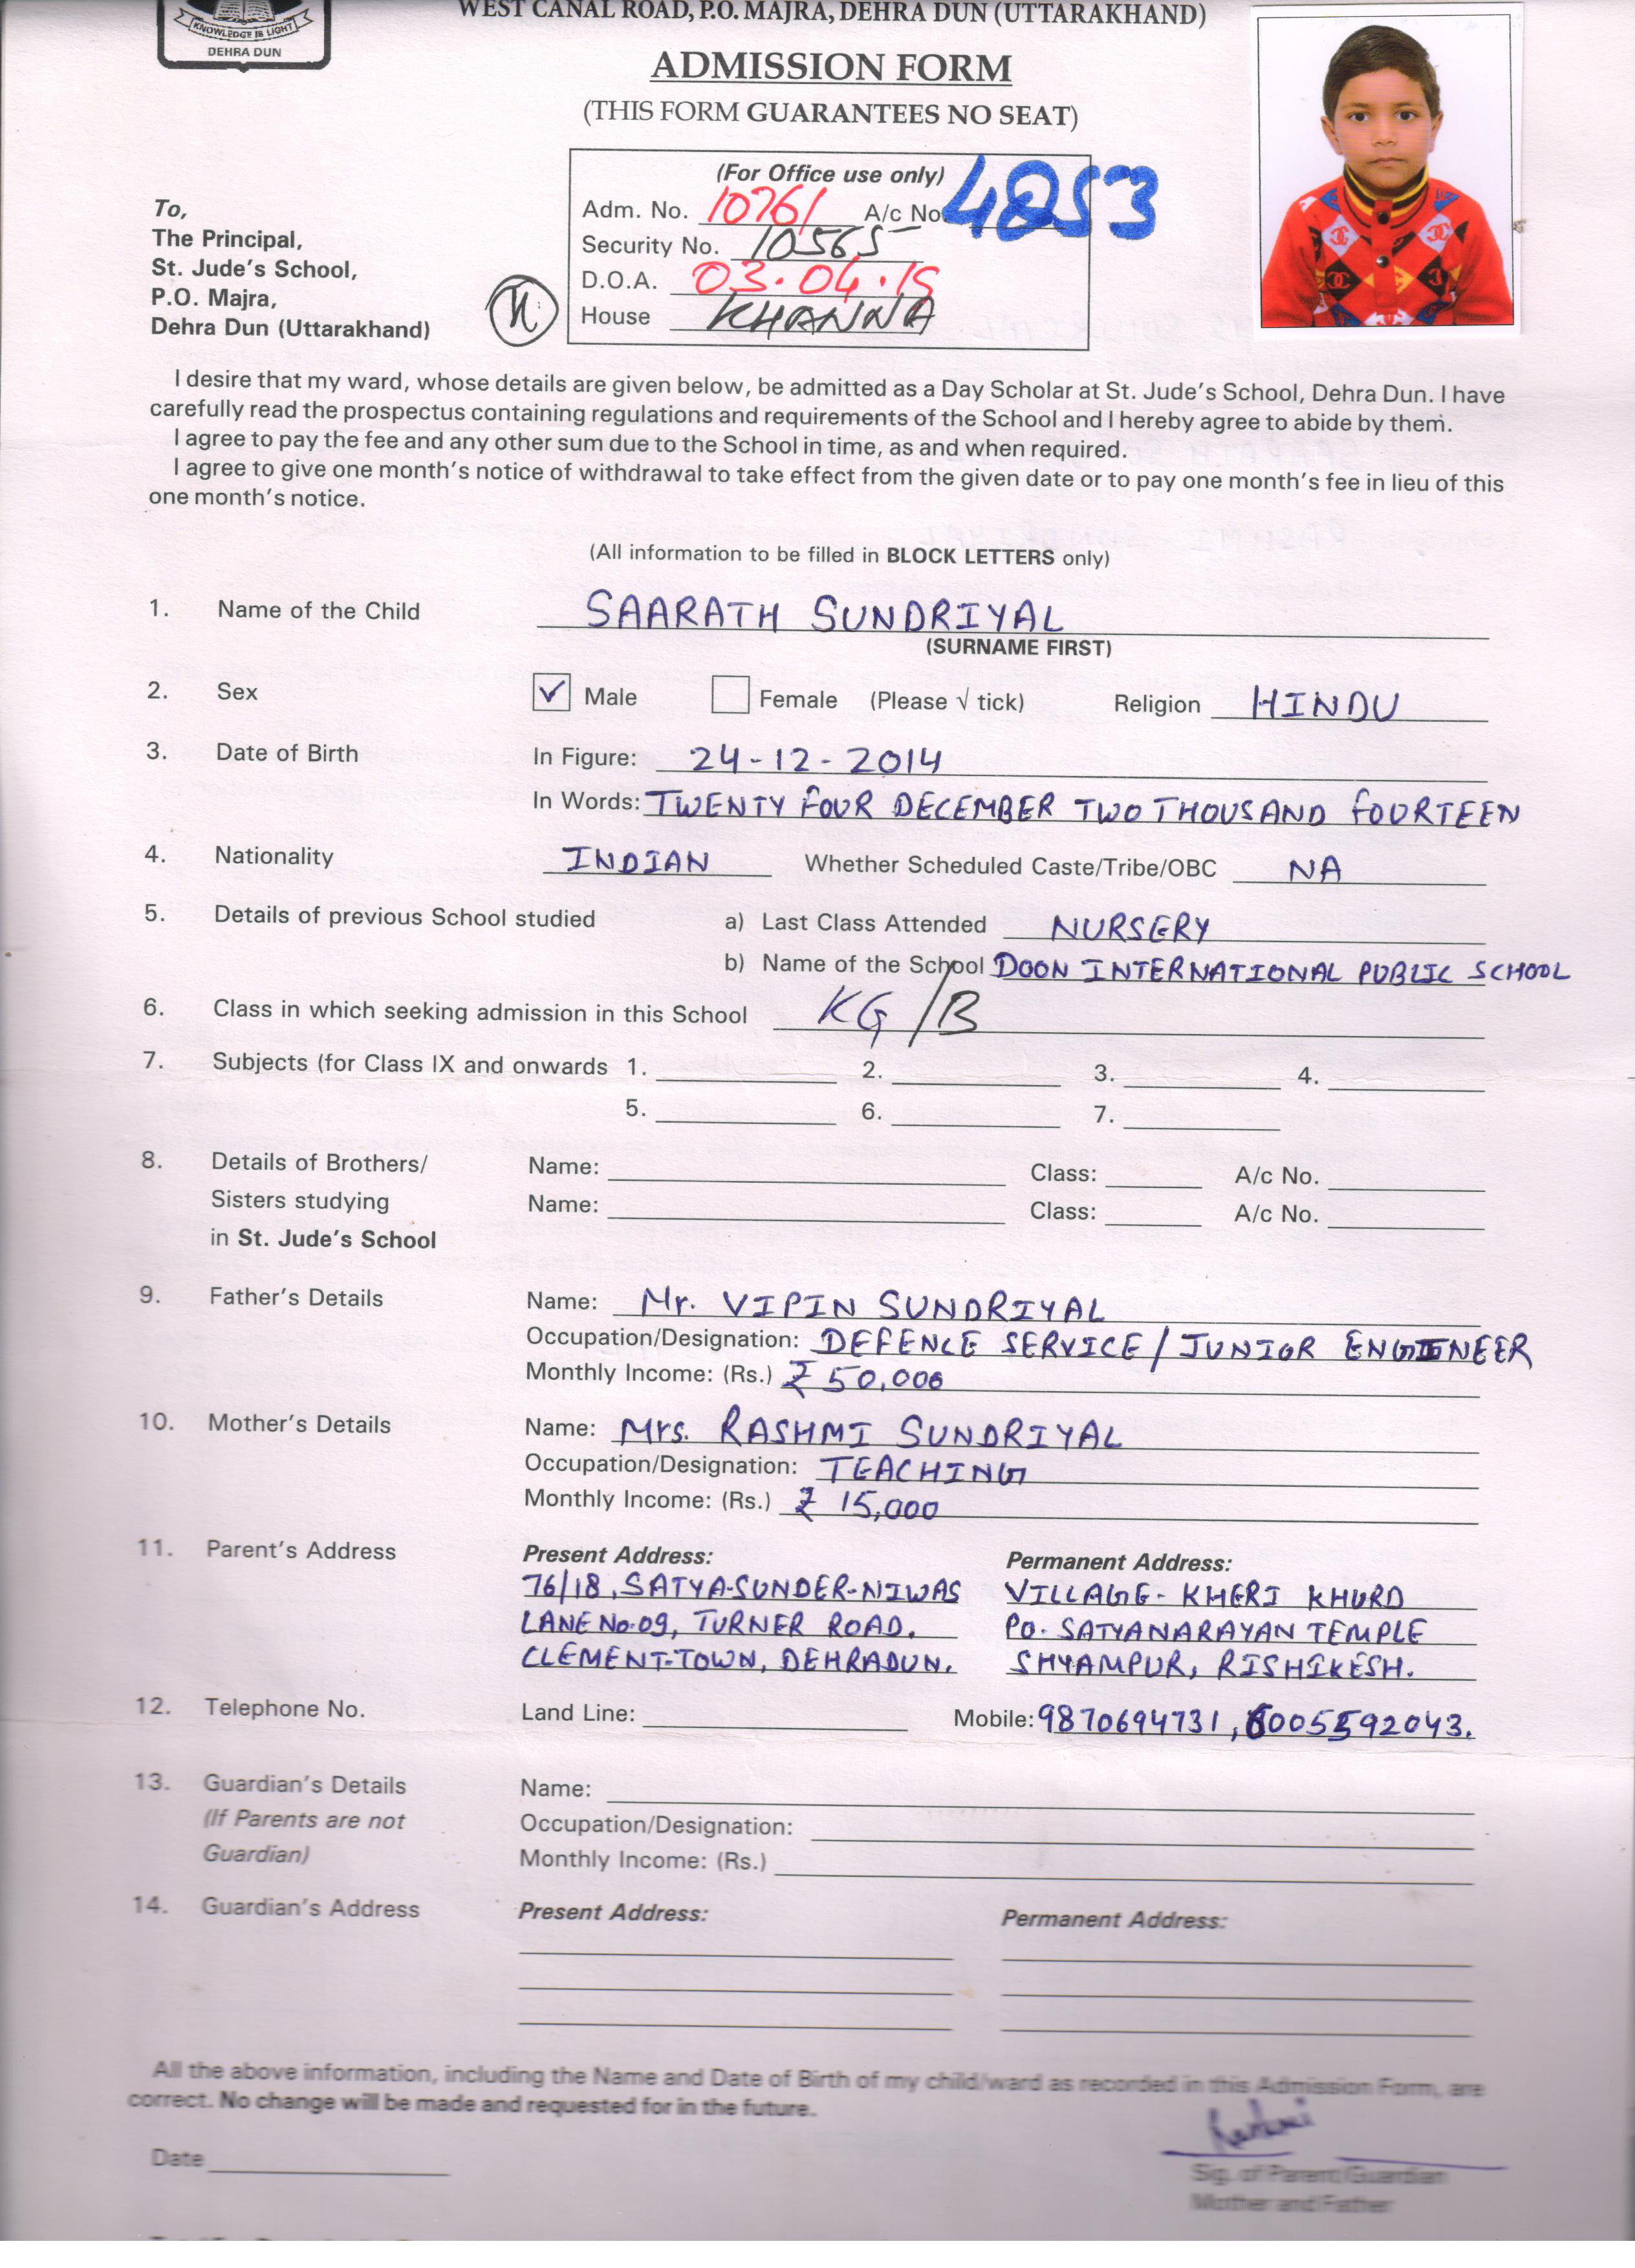 KNOWLEDGE IS LIGHT
DEHRA DUN
WEST CANAL ROAD, P.O. MAJRA, DEHRA DUN (UTTARAKHAND)
ADMISSION FORM
(THIS FORM GUARANTEES NO SEAT)
(For Office use only)
Adm. No. 10761 A/c No 4853
Security No. 10565
D.O.A. 03.04.19
House KHANNA
To,
The Principal,
St. Jude's School,
P.O. Majra,
Dehra Dun (Uttarakhand)
I desire that my ward, whose details are given below, be admitted as a Day Scholar at St. Jude's School, Dehra Dun. I have
carefully read the prospectus containing regulations and requirements of the School and I hereby agree to abide by them.
I agree to pay the fee and any other sum due to the School in time, as and when required.
I agree to give one month's notice of withdrawal to take effect from the given date or to pay one month's fee in lieu of this
one month's notice.
(All information to be filled in BLOCK LETTERS only)
1. Name of the Child SAARATH SUNDRIYAL
(SURNAME FIRST)
2. Sex ✓ Male Female (Please √ tick) Religion HINDU
3. Date of Birth In Figure: 24-12-2014
In Words: TWENTY FOUR DECEMBER TWO THOUSAND FOURTEEN
4. Nationality INDIAN Whether Scheduled Caste/Tribe/OBC NA
5. Details of previous School studied a) Last Class Attended NURSERY
b) Name of the School DOON INTERNATIONAL PUBLIC SCHOOL
6. Class in which seeking admission in this School KG/B
7. Subjects (for Class IX and onwards 1. 2. 3. 4.
5. 6. 7.
8. Details of Brothers/ Name: Class: A/c No.
Sisters studying Name: Class: A/c No.
in St. Jude's School
9. Father's Details Name: Mr. VIPIN SUNDRIYAL
Occupation/Designation: DEFENCE SERVICE/JUNIOR ENGINEER
Monthly Income: (Rs.) ₹ 50,000
10. Mother's Details Name: Mrs. RASHMI SUNDRIYAL
Occupation/Designation: TEACHING
Monthly Income: (Rs.) ₹ 15,000
11. Parent's Address Present Address: Permanent Address:
76/18, SATYA-SUNDER-NIWAS VILLAGE- KHERI KHURD
LANE No.09, TURNER ROAD. PO. SATYANARAYAN TEMPLE
CLEMENT-TOWN, DEHRADUN. SHYAMPUR, RISHIKESH.
12. Telephone No. Land Line: Mobile: 9870694731, 6005592043.
13. Guardian's Details Name:
(If Parents are not Occupation/Designation:
Guardian) Monthly Income: (Rs.)
14. Guardian's Address Present Address: Permanent Address:
All the above information, including the Name and Date of Birth of my child/ward as recorded in this Admission Form, are
correct. No change will be made and requested for in the future.
Date
Sig. of Parent/Guardian
Mother and Father